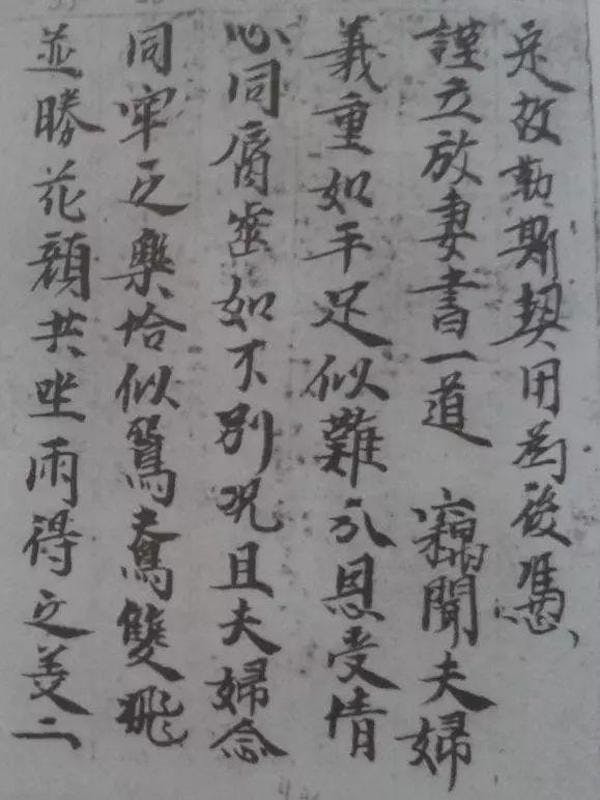 定故勒斯契用為後憑
謹立放妻書一道 竊聞夫婦
義重如手足似難分恩受情
心同脣齒如不別況且夫婦念
同牢之樂恰似鴛鴦雙飛
並勝花顏共坐兩得之美二